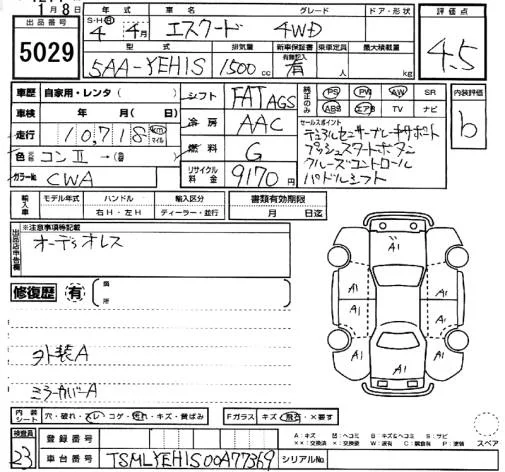 1月8日
年式 車名 グレード ドア・形状 評価点
出品番号 S・H・R 4年 4月 エスクード 4WD 4.5
5029
型式 排気量 新車保証書 乗車定員 最大積載量
有無記入
5AA-YEH1S 1500cc 有 人 kg
車歴 自家用・レンタ( )
シフト FAT AGS
純正のみ PS PW AW SR
ABS エアB TV ナビ
内装評価 b
車検 年 月( )
冷房 AAC
セールスポイント
デュアルセンサーブレーキサポート
プッシュスタートボタン
クルーズコントロール
パドルシフト
走行 10,718 km マイル
色 コンII →( )
燃料 G
カラーNo. CWA
リサイクル料金 9170円
輸入車 モデル年式 ハンドル 輸入区分 書類有効期限
右H・左H ディーラー・並行 月 日迄
出品店申告欄 ※注意事項等記載
オーディオレス
修復歴 有 ( 箇所 )
外装A
ミラーカバーA
A1
A1 A1
A1 A1 A1
A1 A1
A1
内装シート 穴・破れ・スレ・コゲ・汚れ・キズ・黄ばみ
Fガラス キズ・飛石・×要す
A:キズ U:ヘコミ B:キズ&ヘコミ S:サビ
××:交換済 ×:交換 W:波有 C:腐食有 P:塗装
スペア
検査員 23
登録番号
車台番号 TSMLYEH1S00A77369 シリアルNo.